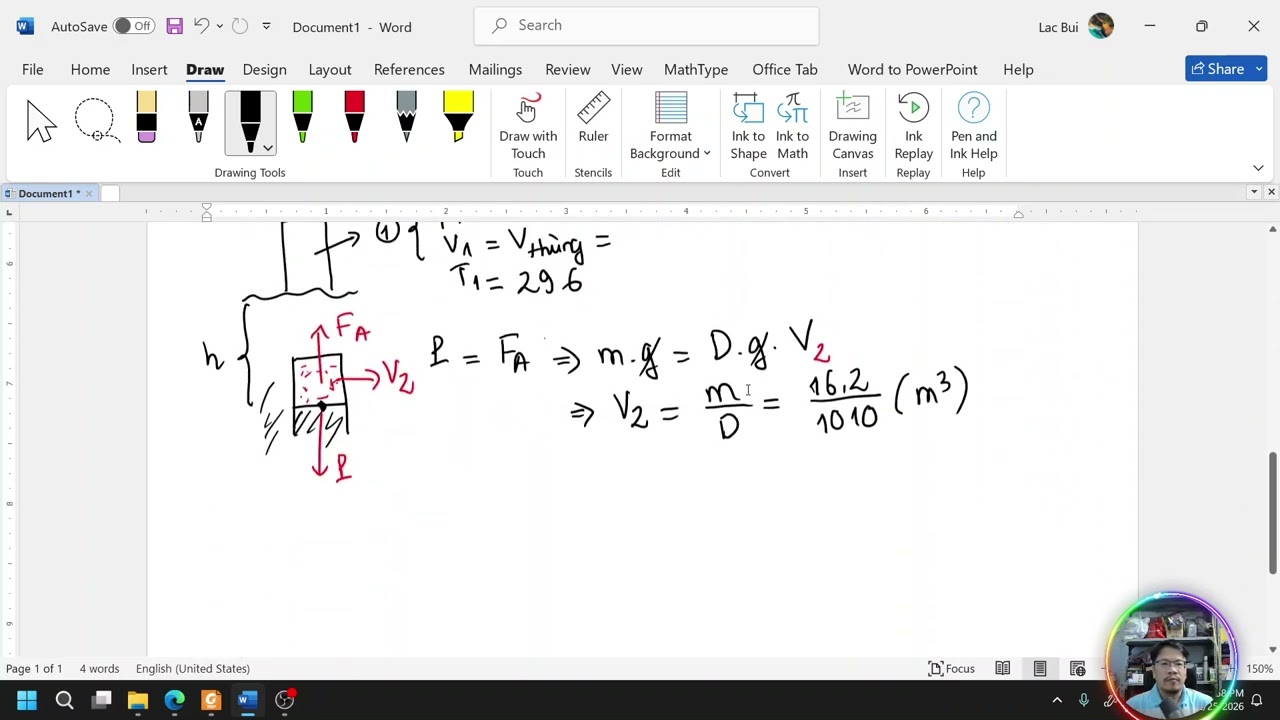 AutoSave Off Document1 - Word Search Lac Bui
File Home Insert Draw Design Layout References Mailings Review View MathType Office Tab Word to PowerPoint Help Share
Draw with Touch Ruler Format Background Ink to Shape Ink to Math Drawing Canvas Ink Replay Pen and Ink Help
Drawing Tools Touch Stencils Edit Convert Insert Replay Help
Document1 *
1 2 3 4 5 6
① { V₁ = V thùng =
T₁ = 296
h F_A V₂ P
P = F_A ⇒ m.g = D.g.V₂
⇒ V₂ = m/D = 16.2/1010 (m³)
6
7
8
9
Page 1 of 1 4 words English (United States) Focus 150%